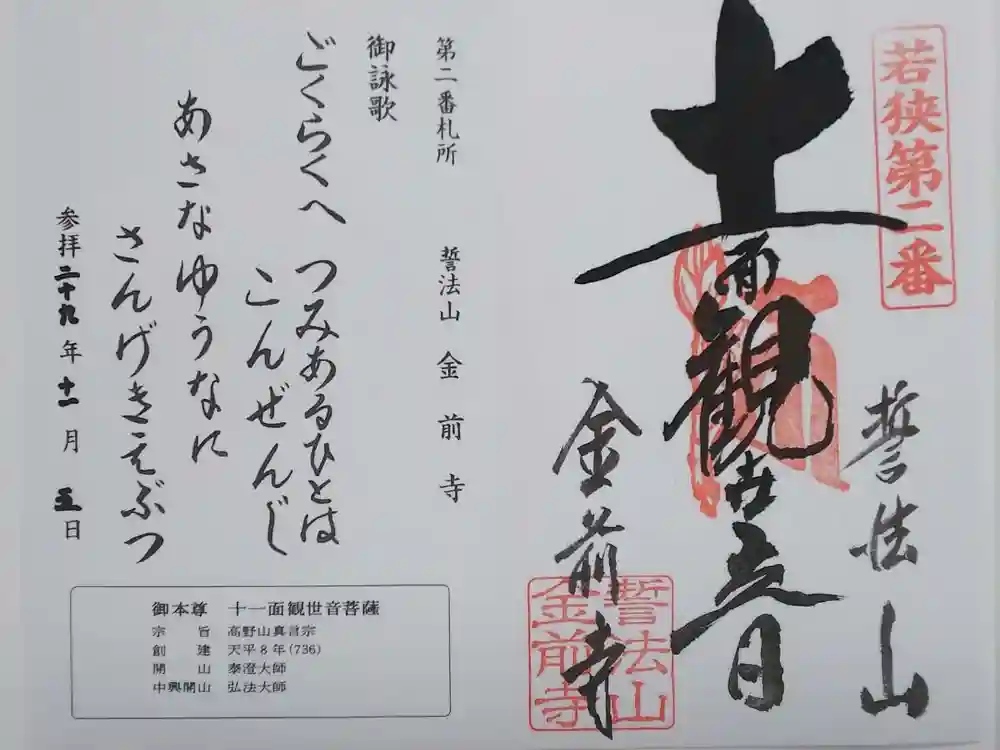 若狭第二番
誓法山
十一面観世音
金前寺
誓法山
金前寺
第二番札所 誓法山 金前寺
御詠歌
ごくらくへ つみあるひとは
こんぜんじ
あさな ゆうなに
さんげきえぶつ
参拝二十九年十一月五日
御本尊 十一面観世音菩薩
宗旨 高野山真言宗
創建 天平8年(736)
開山 泰澄大師
中興開山 弘法大師